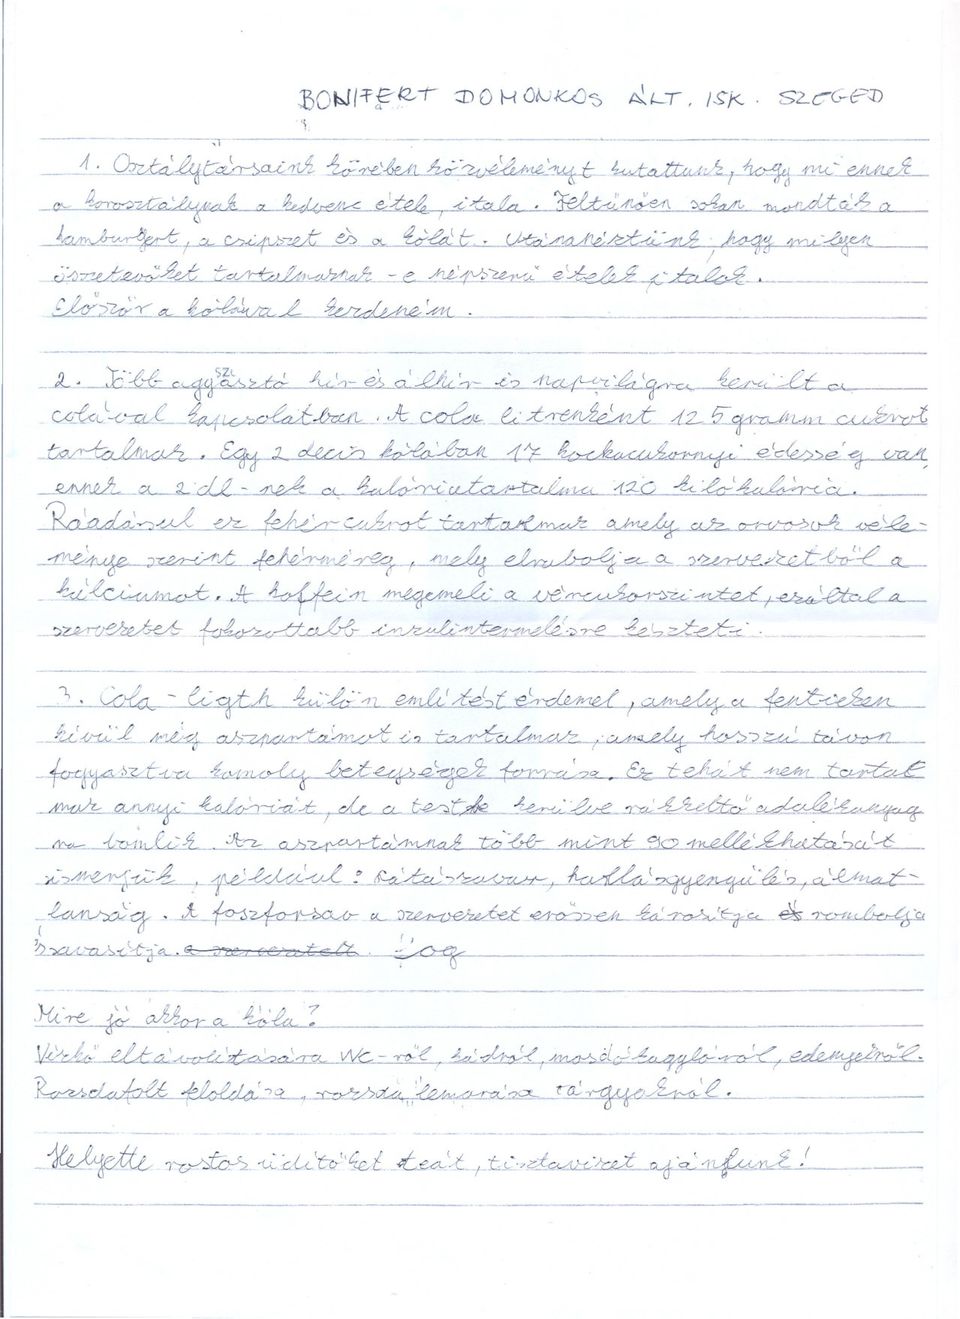 BONIFERT DOMONKOS ÁLT. ISK. SZEGED
1. Osztálytársaink körében közvéleményt kutattunk, hogy mi ennek
a korosztálynak a kedvenc étele, itala. Feltűnően sokan mondták a
hamburgert, a csipszet és a kólát. Utánanéztünk, hogy milyen
összetevőket tartalmaznak -e népszerű ételek italok.
Először a kólával kezdeném.
2. Több agyasztó szí hír és álhír is napvilágra került a
colával kapcsolatban. A cola literenként 125 gramm cukrot
tartalmaz. Egy 2 decis kólában 17 kockacukornyi édesség van,
ennek a 2 dl-nek a kalóriatartalma 120 kilókalória.
Ráadásul ez fehércukrot tartalmaz amely az orvosok véle-
ménye szerint fehérméreg, mely elrabolja a szervezetből a
kálciumot. A koffein megemeli a vércukorszintet, ezáltal a
szervezetet fokozottabb inzulintermelésre készteti.
3. Cola-ligth külön említést érdemel, amely a fentieken
kívül még aszpartámot is tartalmaz, amely hosszú távon
fogyasztva komoly betegségek forrása. Ez tehát nem tartal
maz annyi kalóriát, de a testbe kerülve rákkeltő adalékanyag
ra bomlik. Az aszpartámnak több mint 90 mellékhatását
ismerjük, például: látászavar, hallásgyengülés, álmat-
lanság. A foszforsav a szervezetet erőssen károsítja és rombolja
savasítja. a szervezetett.
Mire jó akkor a kóla?
Vízkő eltávolítására WC-ről, kádról, mosdókagylóról, edényekről.
Rozsdafolt feloldása, rozsda lemarása tárgyakról.
Helyette rostos üdítőket teát, tisztavizet ajánlunk!